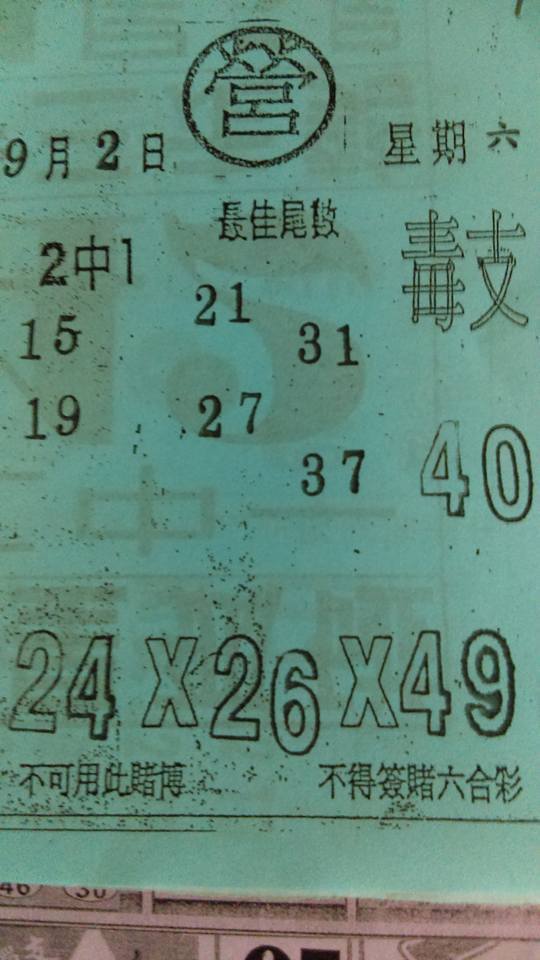 營
9月2日 星期六
長佳尾數
2中1
21
15
31
19
27
37
40
24X26X49
不可用此賭博 不得簽賭六合彩
46 30